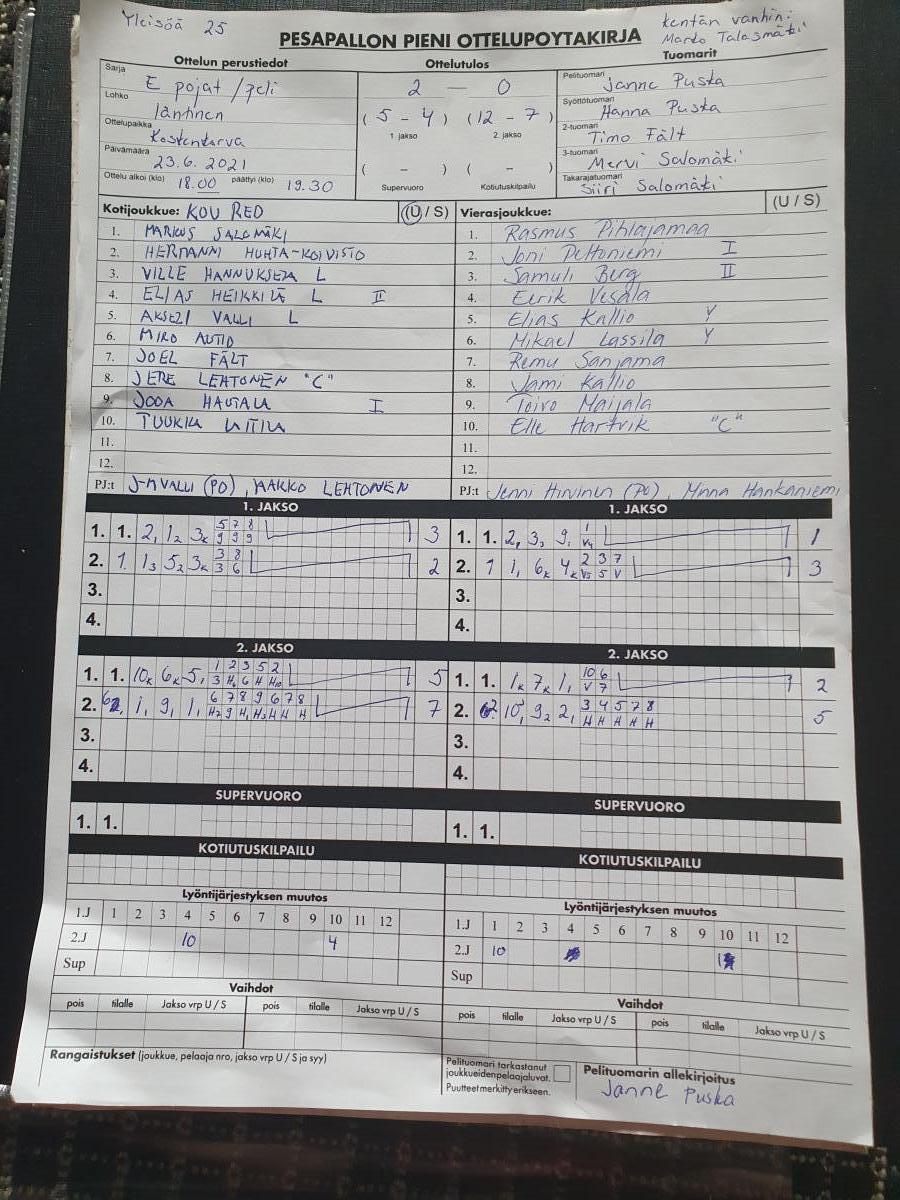 Yleisöä 25
kentän vanhin:
Marko Talasmäki
PESAPALLON PIENI OTTELUPOYTAKIRJA
Ottelun perustiedot
Ottelutulos
Tuomarit
Sarja E pojat /peli
2 — 0
Pelituomari Janne Puska
Lohko läntinen
(5 - 4) (12 - 7)
Syöttötuomari Hanna Puska
Ottelupaikka Koskenkorva
1. jakso 2. jakso
2-tuomari Timo Fält
Päivämäärä 23.6.2021
( - ) ( - )
3-tuomari Mervi Salomäki
Ottelu alkoi (klo) 18.00 päättyi (klo) 19.30
Supervuoro Kotiutuskilpailu
Takarajatuomari Siiri Salomäki
Kotijoukkue: KOU RED (U / S)
1. MARKUS SALOMÄKI
2. HERMANNI HUHTA-KOIVISTO
3. VILLE HANNUKSELA L
4. ELIAS HEIKKILÄ L II
5. AKSELI VALLI L
6. MIRO AUTIO
7. JOEL FÄLT
8. JERE LEHTONEN "C"
9. JOOA HAUTALA I
10. TUUKKA LAITILA
11.
12.
PJ:t J-M VALLI (PO), JAAKKO LEHTONEN
Vierasjoukkue: (U / S)
1. Rasmus Pihlajamaa
2. Joni Peltoniemi I
3. Samuli Berg II
4. Eerik Vesala
5. Elias Kallio Y
6. Mikael Lassila Y
7. Remu Sanjama
8. Jami Kallio
9. Toivo Maijala
10. Elle Hartvik "C"
11.
12.
PJ:t Jenni Hirvinen (PO), Minna Hankaniemi
1. JAKSO
1. 1. 2, 1₂ 3ₖ 5 7 8 3
9 9 9
2. 1. 1₃ 5₂ 3ₖ 3 8 2
3 6
3.
4.
1. JAKSO
1. 1. 2, 3, 9, 1 1
V4
2. 1 1, 6ₖ 4ₖ 2 3 7 3
V5 5 V
3.
4.
2. JAKSO
1. 1. 10ₖ 6ₖ 5, 1 2 3 5 2 5
3 H6 6 H H10
2. 1, 9, 1, 6 7 8 9 6 7 8 7
H7 9 H, H3 H H H
3.
4.
2. JAKSO
1. 1. 1ₖ 7ₖ 1, 10 6 2
V 7
2. 10, 9₂ 2, 3 4 5 7 8 5
H H H H H
3.
4.
SUPERVUORO
1. 1.
SUPERVUORO
1. 1.
KOTIUTUSKILPAILU
KOTIUTUSKILPAILU
Lyöntijärjestyksen muutos
1.J 1 2 3 4 5 6 7 8 9 10 11 12
2.J 10 4
Sup
Lyöntijärjestyksen muutos
1.J 1 2 3 4 5 6 7 8 9 10 11 12
2.J 10 1
Sup
Vaihdot
pois tilalle Jakso vrp U / S pois tilalle Jakso vrp U / S
Vaihdot
pois tilalle Jakso vrp U / S pois tilalle Jakso vrp U / S
Rangaistukset (joukkue, pelaaja nro, jakso vrp U / S ja syy)
Pelituomari tarkastanut
joukkueidenpelaajaluvat.
Puutteet merkitty erikseen.
Pelituomarin allekirjoitus
Janne Puska